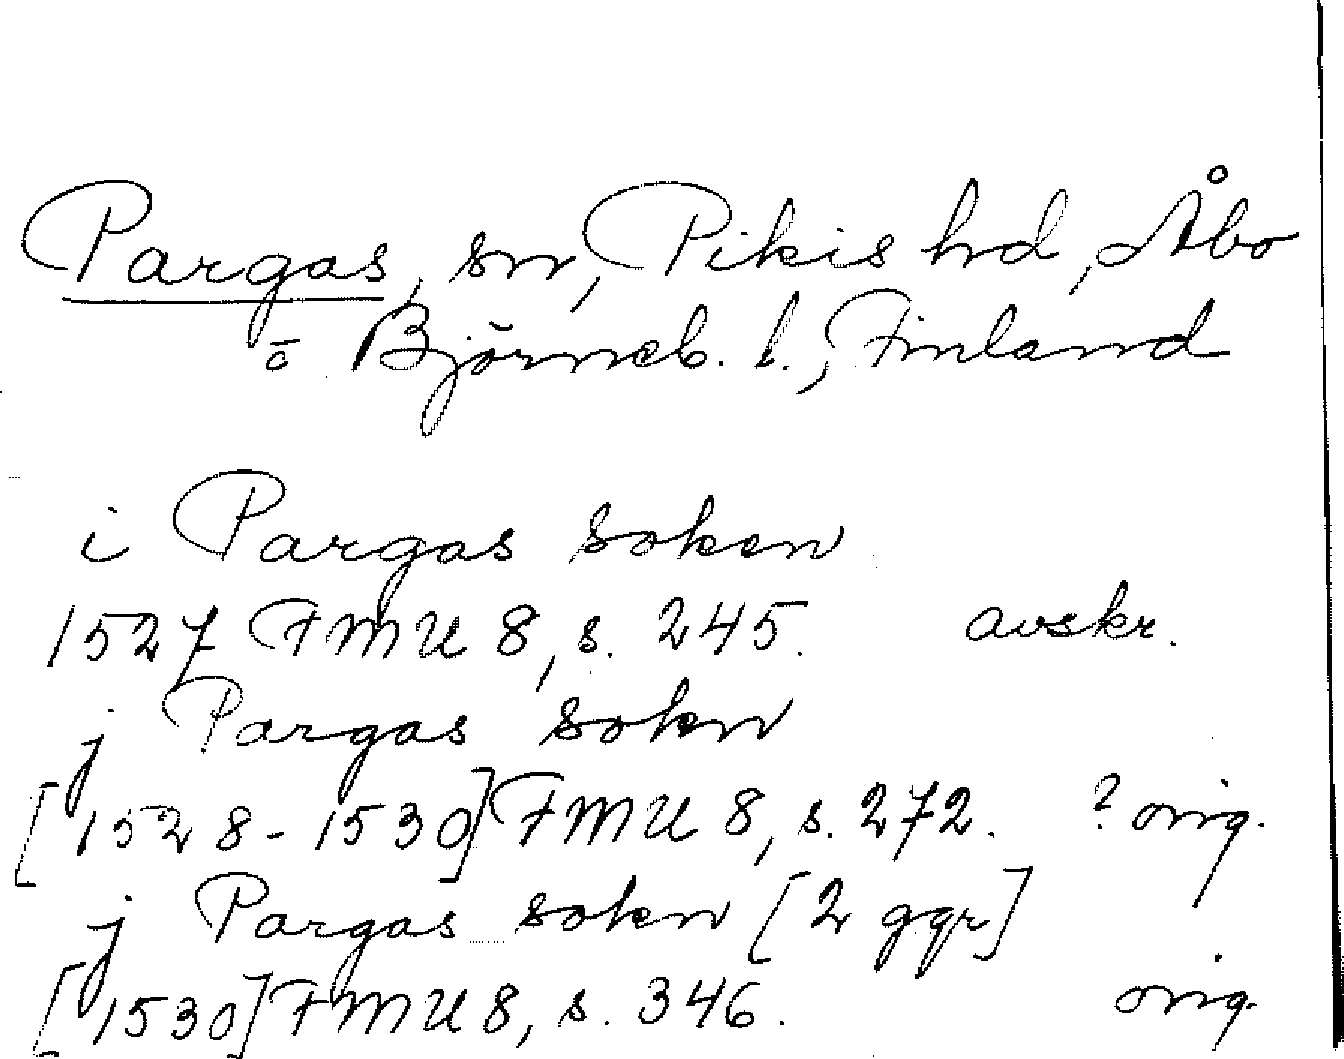 Pargas, sn, Pikis hd, Åbo
o Björneb. l., Finland
i Pargas soken
1527 FMU 8, s. 245. avskr.
j Pargas sokn
[1528-1530] FMU 8, s. 272. ? orig.
j Pargas sokn [2 ggr]
[1530] FMU 8, s. 346. orig.